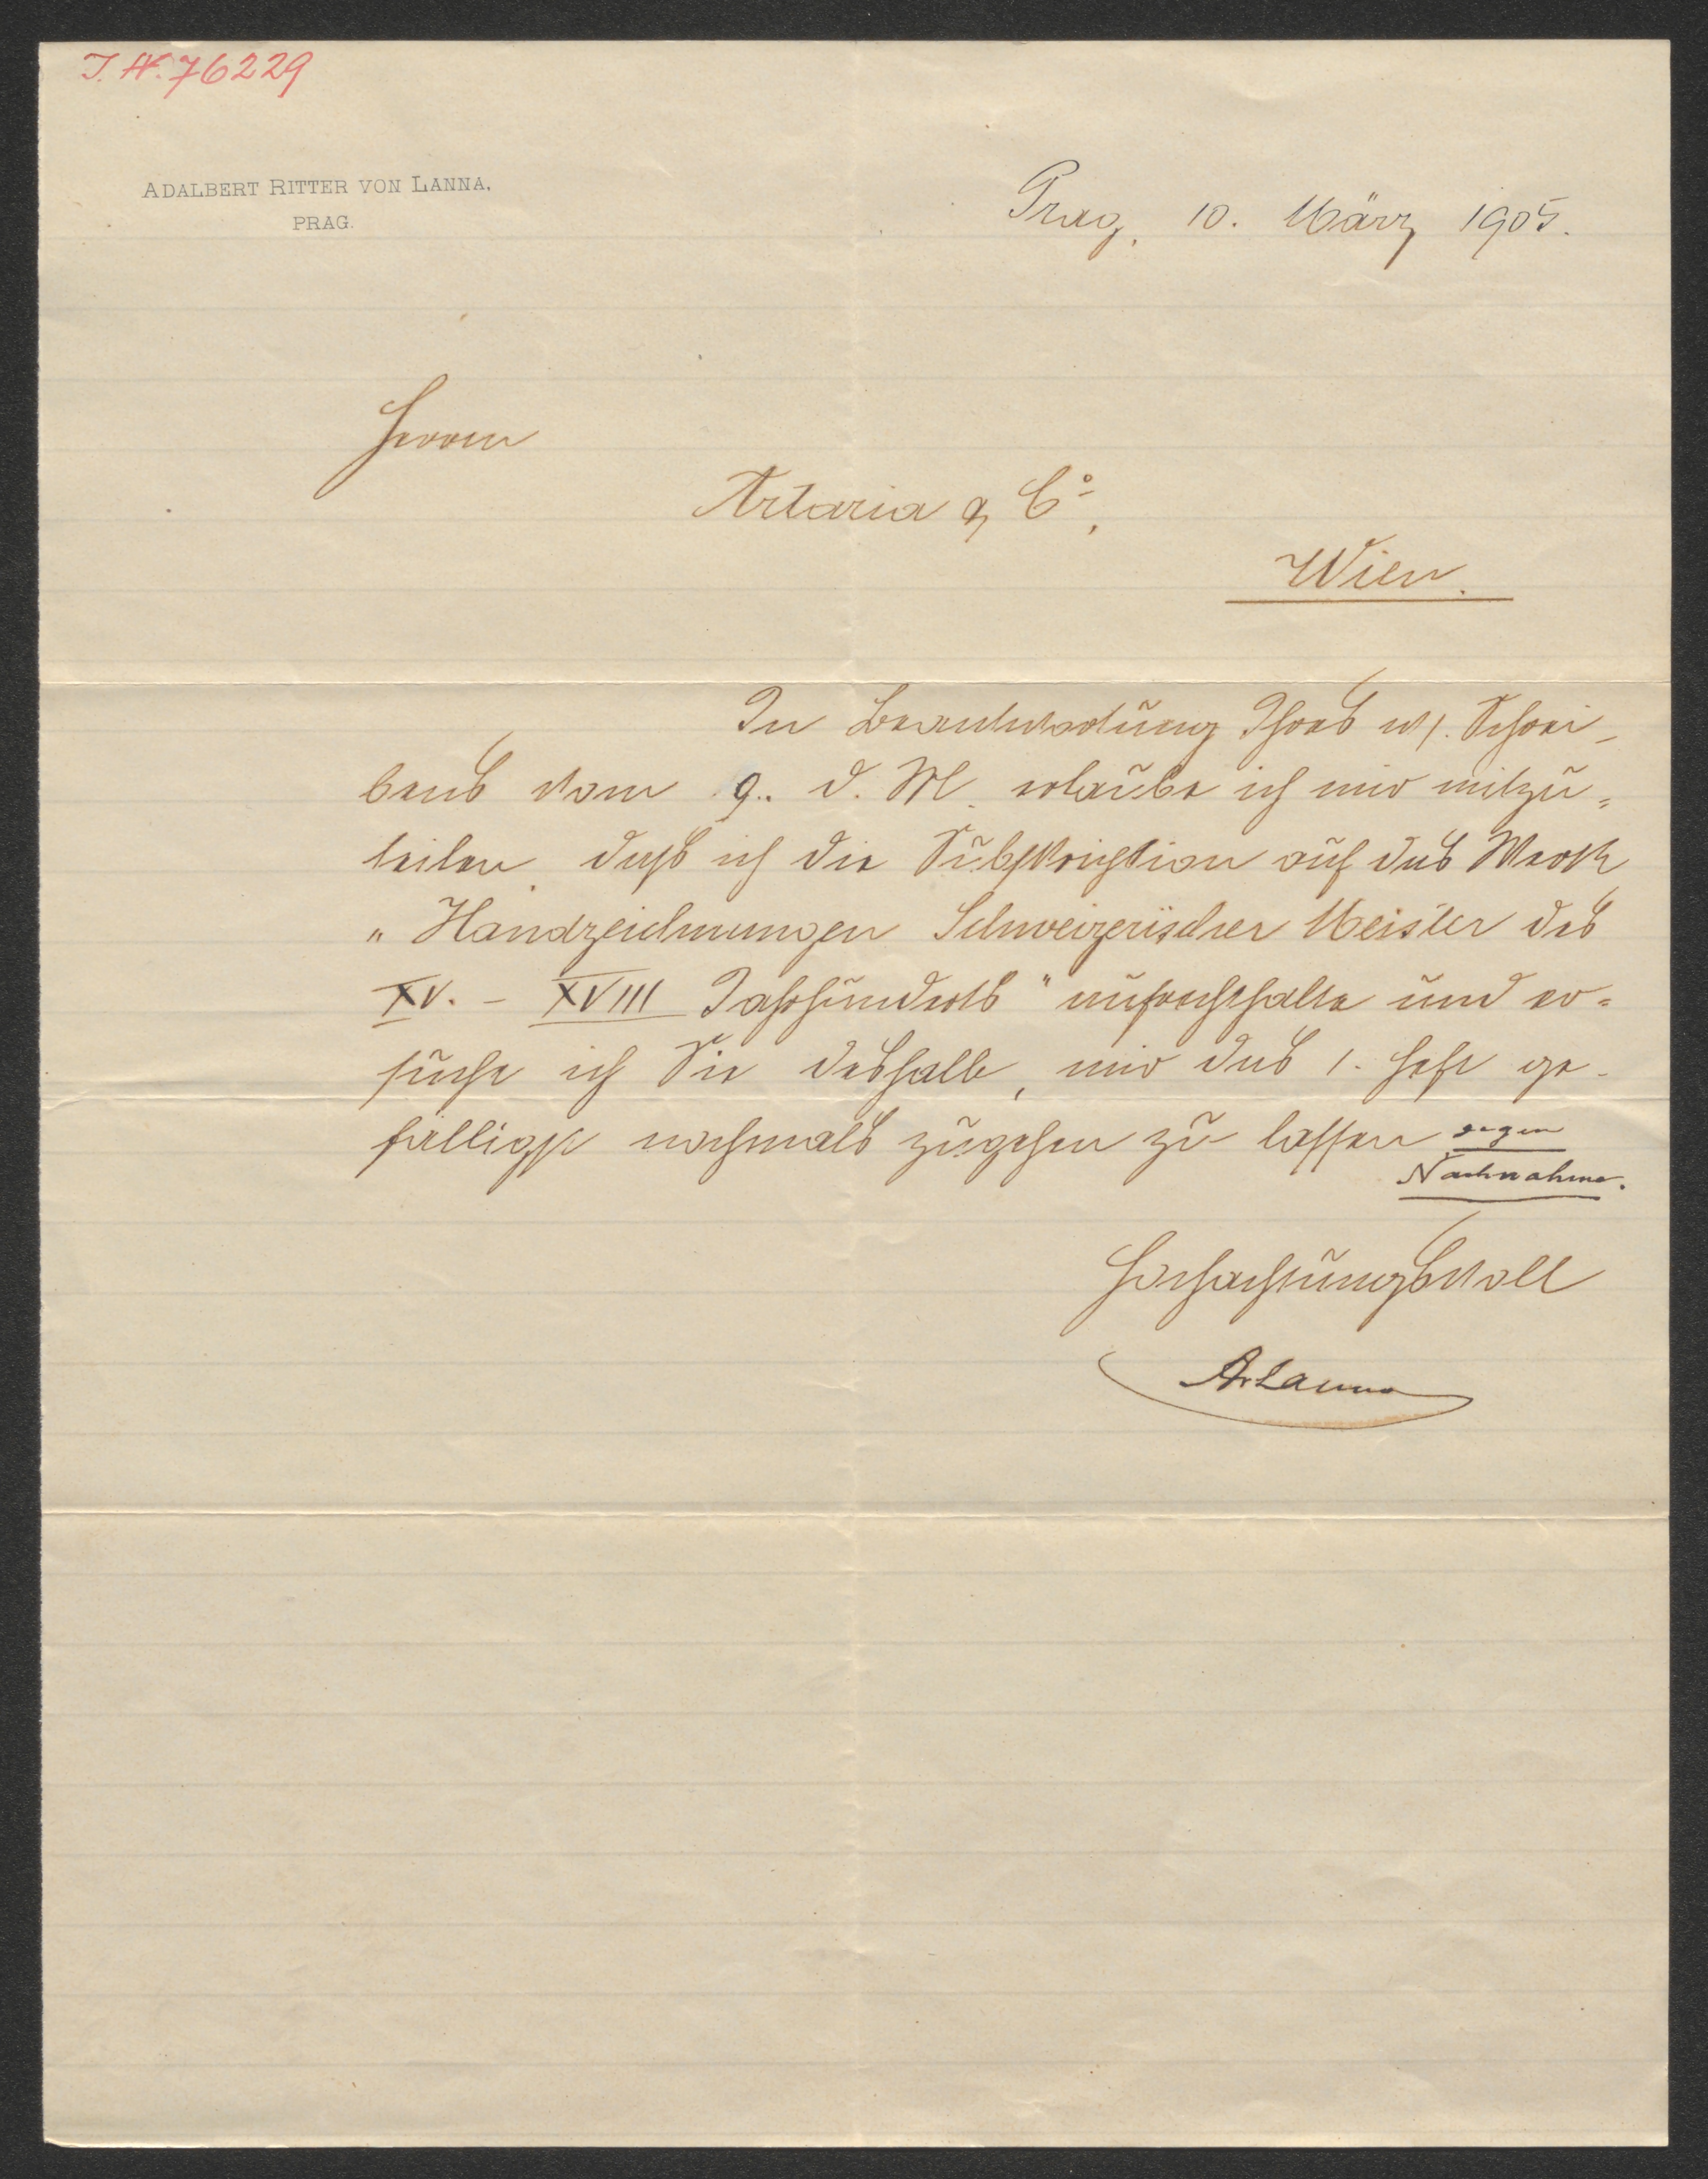 I. N. 76229
ADALBERT RITTER VON LANNA.
PRAG.
Prag, 10. März 1905.
Herren
Artaria & Co.,
Wien.
In Beantwortung Ihres w/. Schrei-
bens vom 9. d. M. erlaube ich mir mitzu=
teilen, daß ich die Subskription auf das Werk
„Handzeichnungen Schweizerischer Meister des
XV. - XVIII Jahrhunderts" aufrechthalte und er=
suche ich Sie deshalb, mir das 1. Heft ge-
fälligst nochmals zugehen zu lassen gegen
Nachnahme.
Hochachtungsvoll
AvLanna